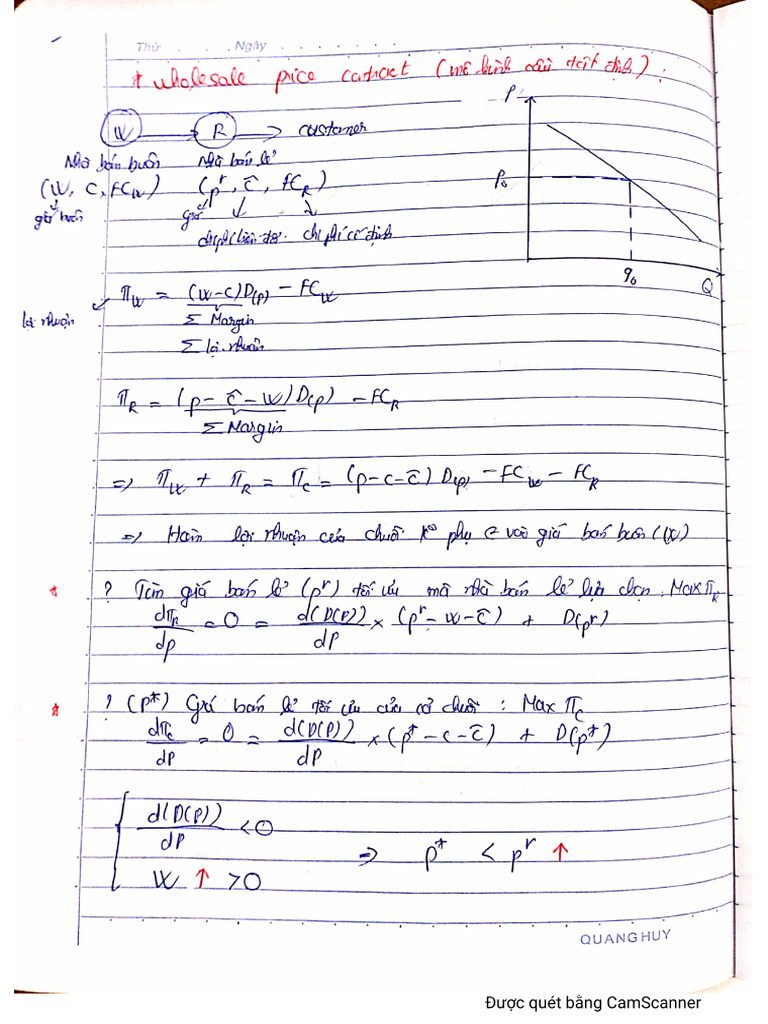 Thứ . . . . Ngày . . . . . . .
* Wholesale price contract (mô hình cầu tất định) :
P
W → R → customer
P₀
Nhà bán buôn Nhà bán lẻ
(W, C, FC_W) (p^r, c̄, FC_R)
giá buôn giá
chi phí biến đổi chi phí cố định
q₀ Q
π_W = (W-C)D(p) - FC_W
lợi nhuận
Σ Margin
Σ lợi nhuận
π_R = (p - c̄ - W) D(p) - FC_R
Σ Margin
=> π_W + π_R = π_C = (p-c-c̄) D(p) - FC_W - FC_R
=> Hàm lợi nhuận của chuỗi kº phụ ∈ vào giá bán buôn (W)
* ? Tìm giá bán lẻ (p^r) tối ưu mà nhà bán lẻ lựa chọn. Max π_R
dπ_R/dp = 0 = d(D(P))/dP × (p^r - w - c̄) + D(p^r)
* ? (p*) Giá bán lẻ tối ưu của cả chuỗi : Max π_C
dπ_C/dP = 0 = d(D(P))/dP × (p* - c - c̄) + D(p*)
{ d(D(P))/dP < 0
=> p* < p^r ↑
W ↑ > 0
QUANG HUY
Được quét bằng CamScanner